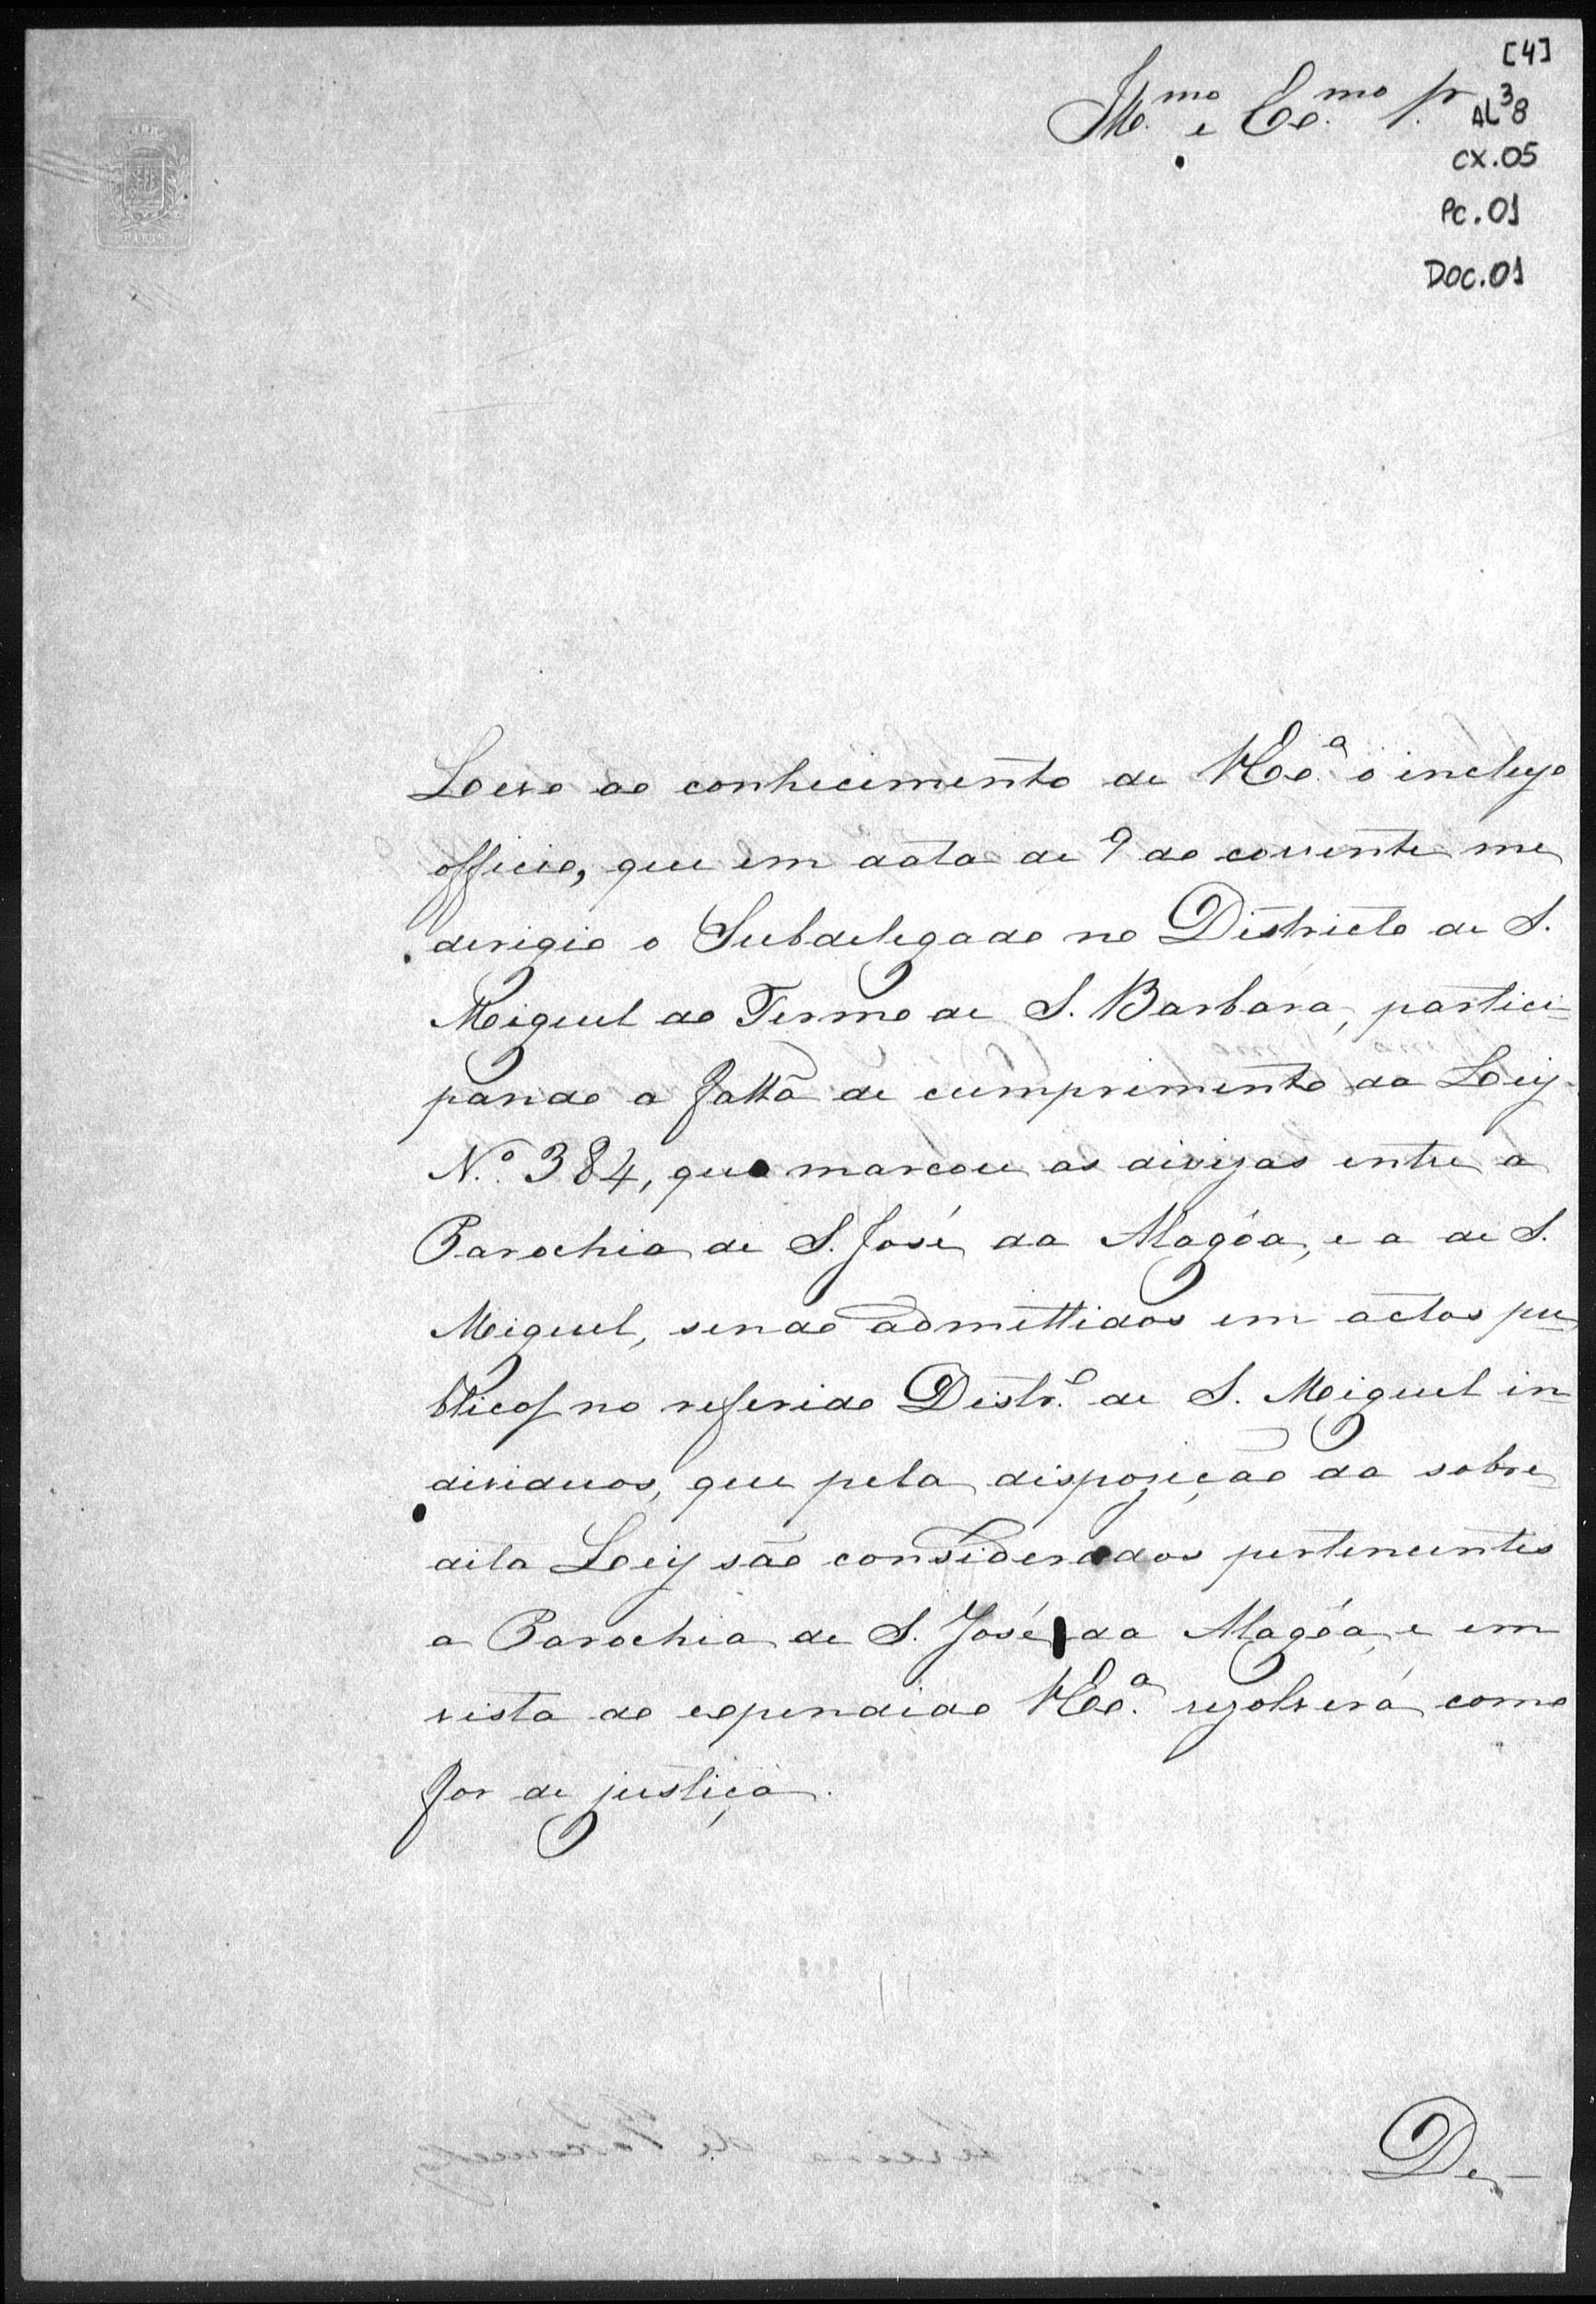 [4]
Ill.mo e Ex.mo Sr.
AL³8
CX.05
PC.01
DOC.01
Levo ao conhecimento de V Ex.ª o incluzo
officio, que em data de 9 do corrente me
derigio o Subdelegado no Districto de S.
Miguel do Termo de S. Barbara, partici=
pando a falta de cumprimento da Ley
N.º 384, que marcou as divizas entre a
Parochia de S. José da Alagôa, e a de S.
Miguel, sendo admittidos em actos pu=
blicos no referido Distr.º de S. Miguel in=
dividuos, que pela dispozição da sobre
dita Ley são considerados pertencentes
a Parochia de S. José da Alagôa, e em
vista do expendido V Ex.ª rezolverá como
for de justiça.
De-